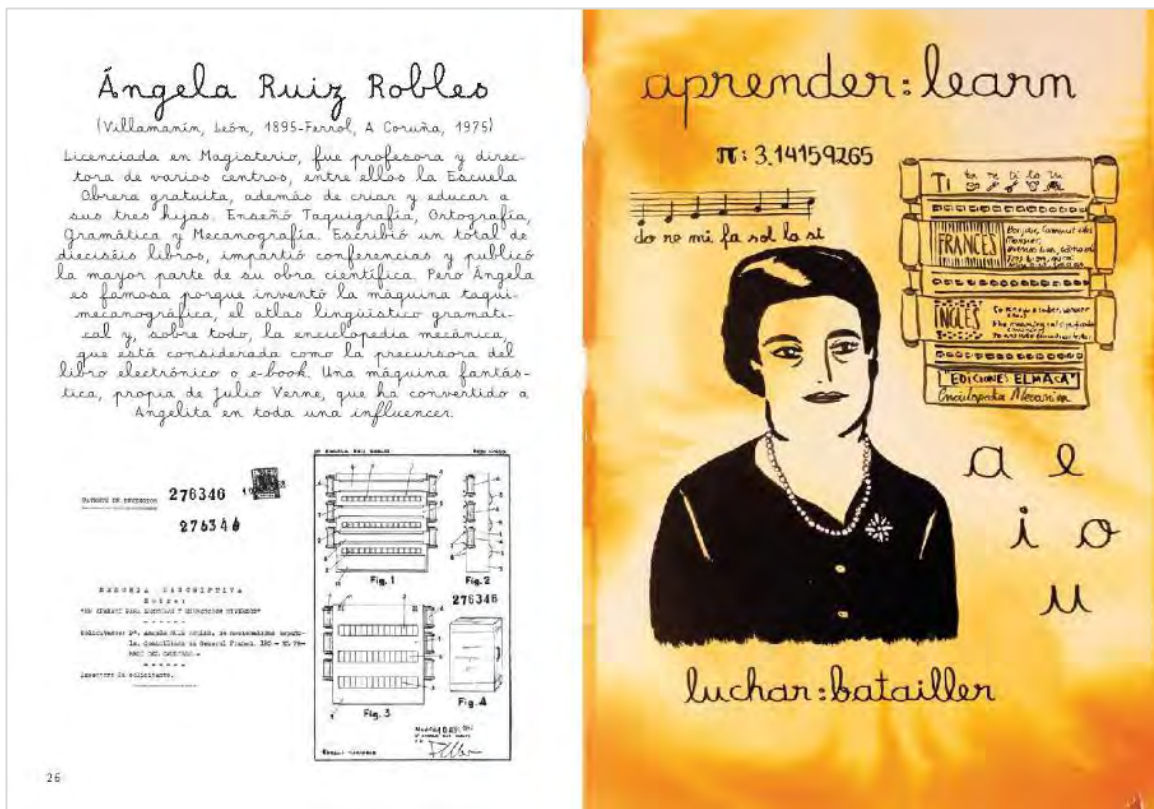 Ángela Ruiz Robles
(Villamanín, León, 1895-Ferrol, A Coruña, 1975)
Licenciada en Magisterio, fue profesora y direc-
tora de varios centros, entre ellos la Escuela
Obrera gratuita, además de criar y educar a
sus tres hijas. Enseñó Taquigrafía, Ortografía,
Gramática y Mecanografía. Escribió un total de
dieciséis libros, impartió conferencias y publicó
la mayor parte de su obra científica. Pero Ángela
es famosa porque inventó la máquina taqui-
mecanográfica, el atlas lingüístico gramati-
cal y, sobre todo, la enciclopedia mecánica,
que está considerada como la precursora del
libro electrónico o e-book. Una máquina fantás-
tica, propia de Julio Verne, que ha convertido a
Angelita en toda una influencer.
PATENTE DE INVENCION
276346
276346
MEMORIA DESCRIPTIVA
Sobre:
Dª ANGELA RUIZ ROBLES
Fig. 1
Fig. 2
276346
Fig. 3
Fig. 4
26
aprender: learn
π: 3.14159265
do re mi fa sol la si
TI
FRANCÉS
INGLÉS
"EDICIONES ELMACA"
Enciclopedia Mecánica
a e
i o
u
luchar: batailler